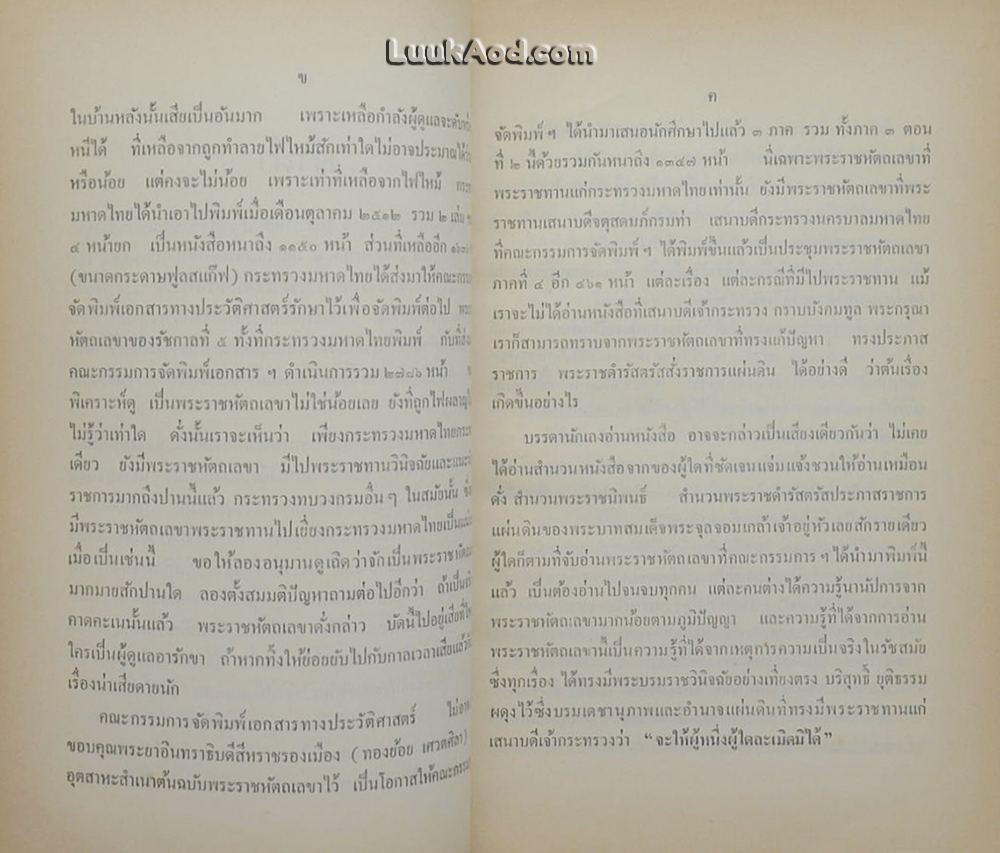 LuukAod.com
ข
ในบ้านหลังนั้นเสียเป็นอันมาก เพราะเหลือกำลังผู้ดูแลจะดับ
หนีได้ ที่เหลือจากถูกทำลายไฟไหม้สักเท่าใดไม่อาจประมาณได้
หรือน้อย แต่คงจะไม่น้อย เพราะเท่าที่เหลือจากไฟไหม้
มหาดไทยได้นำเอาไปพิมพ์เมื่อเดือนตุลาคม ๒๕๑๒ รวม ๒ เล่ม
๔ หน้ายก เป็นหนังสือหนาถึง ๑๑๕๐ หน้า ส่วนที่เหลืออีก
(ขนาดกระดาษฟูลสแก๊ฟ) กระทรวงมหาดไทยได้ส่งมาให้คณะกรรม
จัดพิมพ์เอกสารทางประวัติศาสตร์รักษาไว้เพื่อจัดพิมพ์ต่อไป พระ
หัตถเลขาของรัชกาลที่ ๕ ทั้งที่กระทรวงมหาดไทยพิมพ์ กับที่ส่ง
คณะกรรมการจัดพิมพ์เอกสาร ฯ ดำเนินการรวม ๒๗๘๖ หน้า
พิเคราะห์ดู เป็นพระราชหัตถเลขาไม่ใช่น้อยเลย ยังที่ถูกไฟผลาญ
ไม่รู้ว่าเท่าใด ดั่งนั้นเราจะเห็นว่า เพียงกระทรวงมหาดไทยกระท
เดียว ยังมีพระราชหัตถเลขา มีไปพระราชทานวินิจฉัยและแนะนำ
ราชการมากถึงปานนี้แล้ว กระทรวงทบวงกรมอื่น ๆ ในสมัยนั้น
มีพระราชหัตถเลขาพระราชทานไปเยี่ยงกระทรวงมหาดไทยเป็น
เมื่อเป็นเช่นนี้ ขอให้ลองอนุมานดูเถิดว่าจักเป็นพระราชหัตถ
มากมายสักปานใด ลองตั้งสมมติปัญหาถามต่อไปอีกว่า ถ้าเป็น
คาดคะเนนั้นแล้ว พระราชหัตถเลขาดั่งกล่าว บัดนี้ไปอยู่เสียที่
ใครเป็นผู้ดูแลอารักขา ถ้าหากทิ้งให้ย่อยยับไปกับกาลเวลาเสียแล้ว
เรื่องน่าเสียดายนัก
คณะกรรมการจัดพิมพ์เอกสารทางประวัติศาสตร์ ไม่อาจ
ขอบคุณพระยาอินทราธิบดีสีหราชรองเมือง (ทองย้อย เศวตศิลา)
อุตสาหะสำเนาต้นฉบับพระราชหัตถเลขาไว้ เป็นโอกาสให้คณะกรรม
ค
จัดพิมพ์ ฯ ได้นำมาเสนอนักศึกษาไปแล้ว ๓ ภาค รวม ทั้งภาค ๓ ตอน
ที่ ๒ นี้ด้วยรวมกันหนาถึง ๑๓๔๗ หน้า นี่เฉพาะพระราชหัตถเลขาที่
พระราชทานแก่กระทรวงมหาดไทยเท่านั้น ยังมีพระราชหัตถเลขาที่พระ
ราชทานเสนาบดีจตุสดมภ์กรมท่า เสนาบดีกระทรวงนครบาลมหาดไทย
ที่คณะกรรมการจัดพิมพ์ ฯ ได้พิมพ์ขึ้นแล้วเป็นประชุมพระราชหัตถเลขา
ภาคที่ ๔ อีก ๔๖๑ หน้า แต่ละเรื่อง แต่ละกรณีที่มีไปพระราชทาน แม้
เราจะไม่ได้อ่านหนังสือที่เสนาบดีเจ้ากระทรวง กราบบังคมทูล พระกรุณา
เราก็สามารถทราบจากพระราชหัตถเลขาที่ทรงแก้ปัญหา ทรงประภาส
ราชการ พระราชดำรัสตรัสสั่งราชการแผ่นดิน ได้อย่างดี ว่าต้นเรื่อง
เกิดขึ้นอย่างไร
บรรดานักเลงอ่านหนังสือ อาจจะกล่าวเป็นเสียงเดียวกันว่า ไม่เคย
ได้อ่านสำนวนหนังสือจากของผู้ใดที่ชัดเจนแจ่มแจ้งชวนให้อ่านเหมือน
ดั่ง สำนวนพระราชนิพนธ์ สำนวนพระราชดำรัสตรัสประภาสราชการ
แผ่นดินของพระบาทสมเด็จพระจุลจอมเกล้าเจ้าอยู่หัวเลยสักรายเดียว
ผู้ใดก็ตามที่จับอ่านพระราชหัตถเลขาที่คณะกรรมการ ฯ ได้นำมาพิมพ์นี้
แล้ว เป็นต้องอ่านไปจนจบทุกคน แต่ละคนต่างได้ความรู้นานัปการจาก
พระราชหัตถเลขามากน้อยตามภูมิปัญญา และความรู้ที่ได้จากการอ่าน
พระราชหัตถเลขานี้เป็นความรู้ที่ได้จากเหตุการความเป็นจริงในรัชสมัย
ซึ่งทุกเรื่อง ได้ทรงมีพระบรมราชวินิจฉัยอย่างเที่ยงตรง บริสุทธิ์ ยุติธรรม
ผดุงไว้ซึ่งบรมเดชานุภาพและอำนาจแผ่นดินที่ทรงมีพระราชทานแก่
เสนาบดีเจ้ากระทรวงว่า “จะให้ผู้หนึ่งผู้ใดละเมิดมิได้”